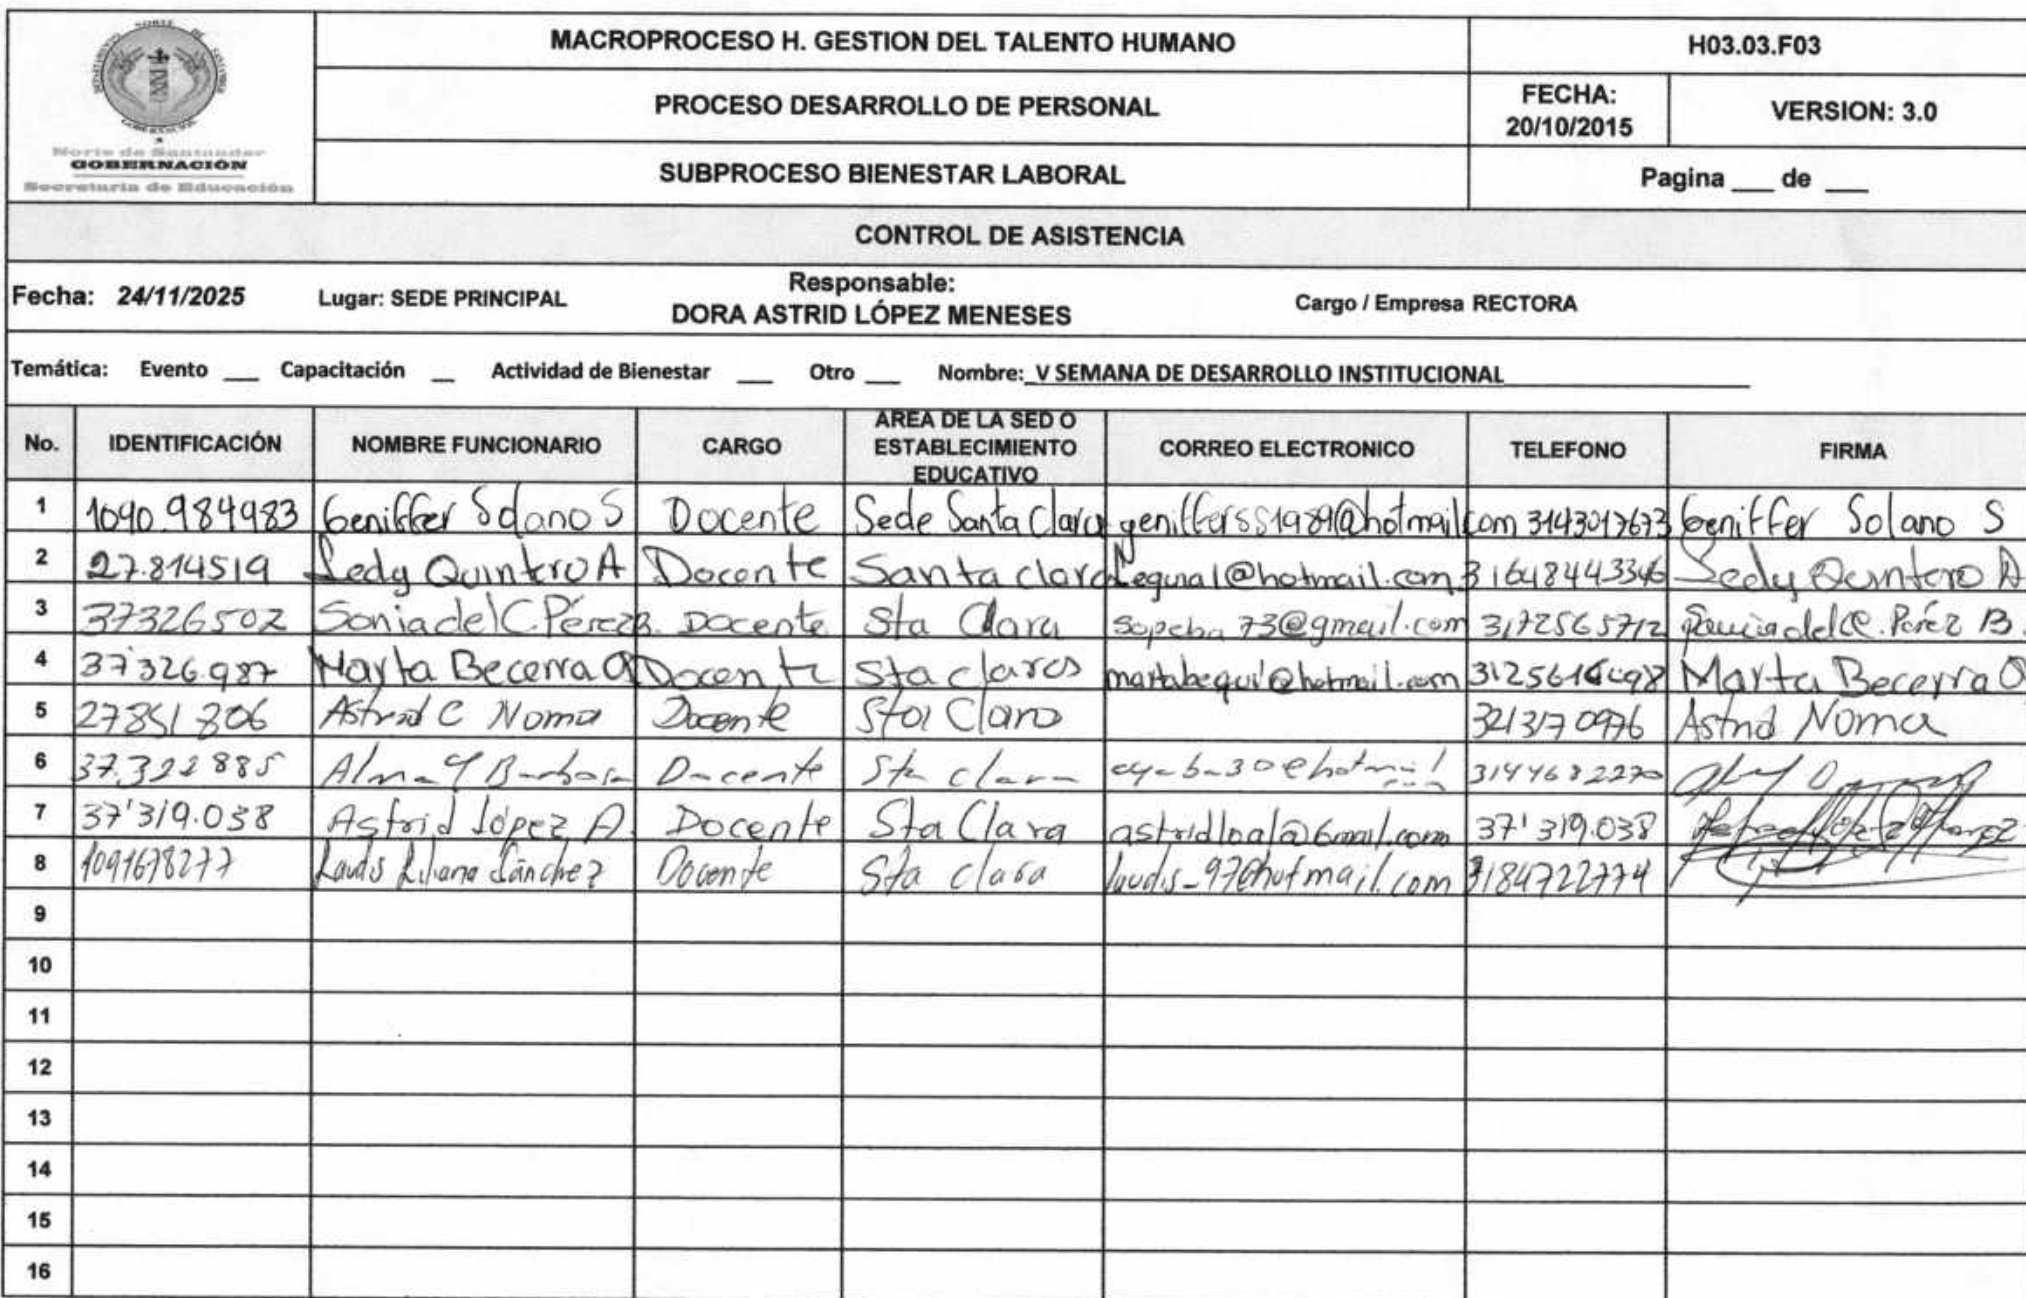 NORTE DE SANTANDER
DEPARTAMENTO
GOBERNACION
Norte de Santander
GOBERNACIÓN
Secretaria de Educación
MACROPROCESO H. GESTION DEL TALENTO HUMANO
H03.03.F03
PROCESO DESARROLLO DE PERSONAL
FECHA: 20/10/2015
VERSION: 3.0
SUBPROCESO BIENESTAR LABORAL
Pagina ___ de ___
CONTROL DE ASISTENCIA
Fecha: 24/11/2025 Lugar: SEDE PRINCIPAL Responsable: DORA ASTRID LÓPEZ MENESES Cargo / Empresa RECTORA
Temática: Evento ___ Capacitación ___ Actividad de Bienestar ___ Otro ___ Nombre: V SEMANA DE DESARROLLO INSTITUCIONAL
No. IDENTIFICACIÓN NOMBRE FUNCIONARIO CARGO AREA DE LA SED O ESTABLECIMIENTO EDUCATIVO CORREO ELECTRONICO TELEFONO FIRMA
1 1090.984983 Geniffer Solano S Docente Sede Santa Clara genifferss1989@hotmail.com 3143017673 Geniffer Solano S
2 27.814519 Ledy Quintero A Docente Santa clara Lequial@hotmail.com 31648443346 Ledy Quintero A
3 37326502 Sonia del C. Pérez B. Docente Sta Clara sopeba73@gmail.com 3172565712 Sonia del C. Pérez B.
4 37'326.987 Marta Becerra Q Docente Sta clara martabequi@hotmail.com Marta Becerra Q
5 27851806 Astrid C Noma Docente Sta Clara 3213170976 Astrid Noma
6 37.322885 Alma Y Barbosa Docente Sta clara 3144682270
7 37'319.038 Astrid López A. Docente Sta Clara astridloal@Gmail.com 37'319.038
8 1091678277 Laudis Liliana Sánchez Docente Sta clara laudis_97@hotmail.com 3184722774
9
10
11
12
13
14
15
16